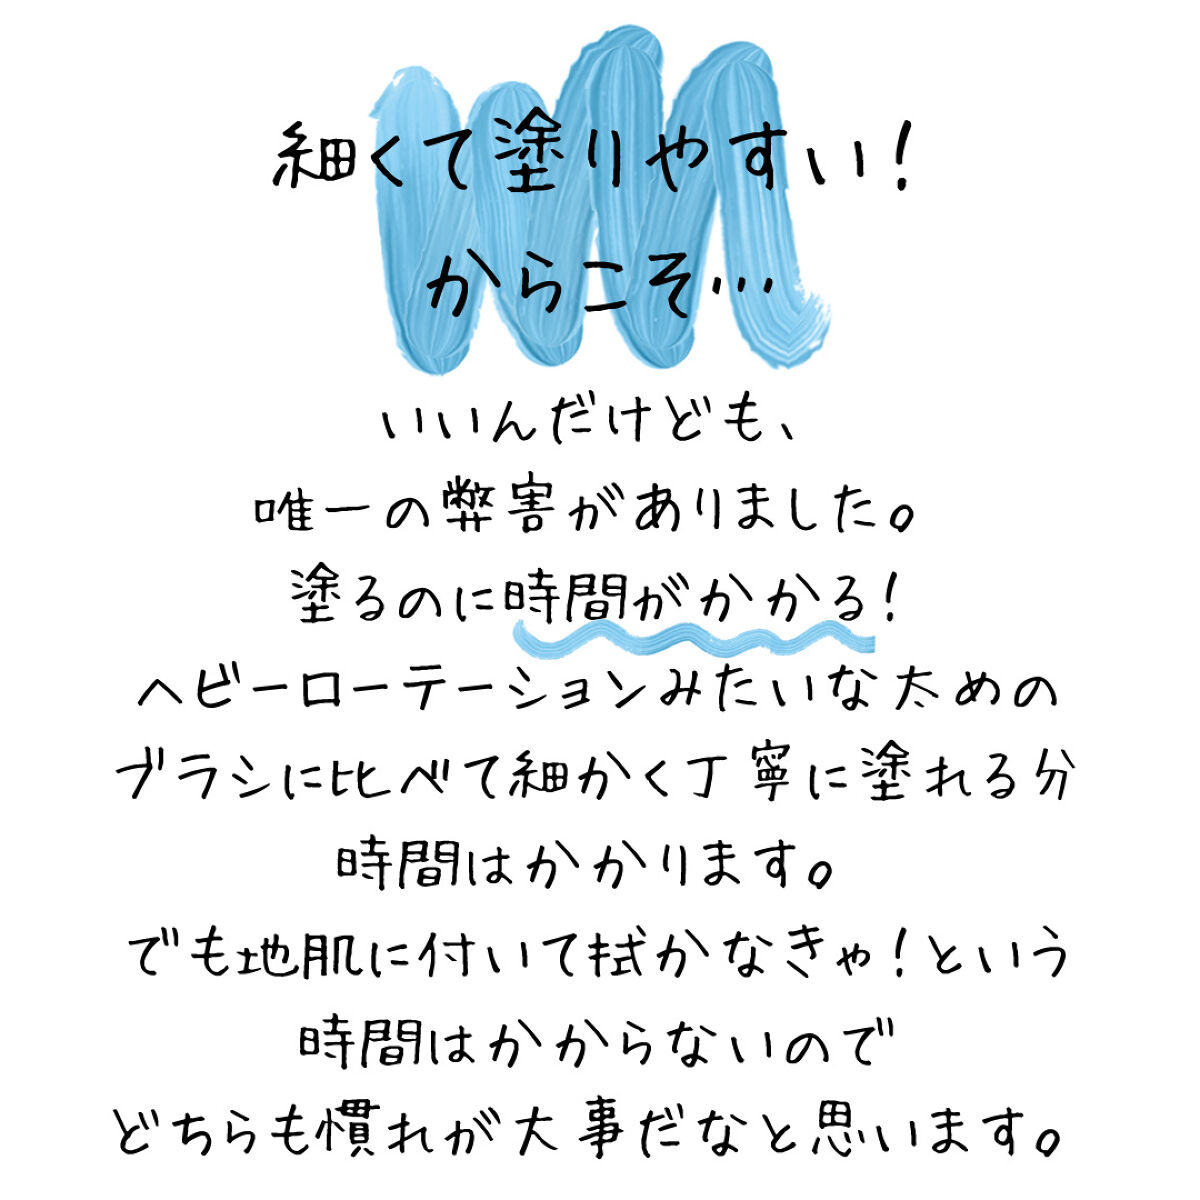 細くて塗りやすい!
からこそ…
いいんだけども、
唯一の弊害がありました。
塗るのに時間がかかる!
ヘビーローテーションみたいな太めの
ブラシに比べて細かく丁寧に塗れる分
時間はかかります。
でも地肌に付いて拭かなきゃ!という
時間はかからないので
どちらも慣れが大事だなと思います。